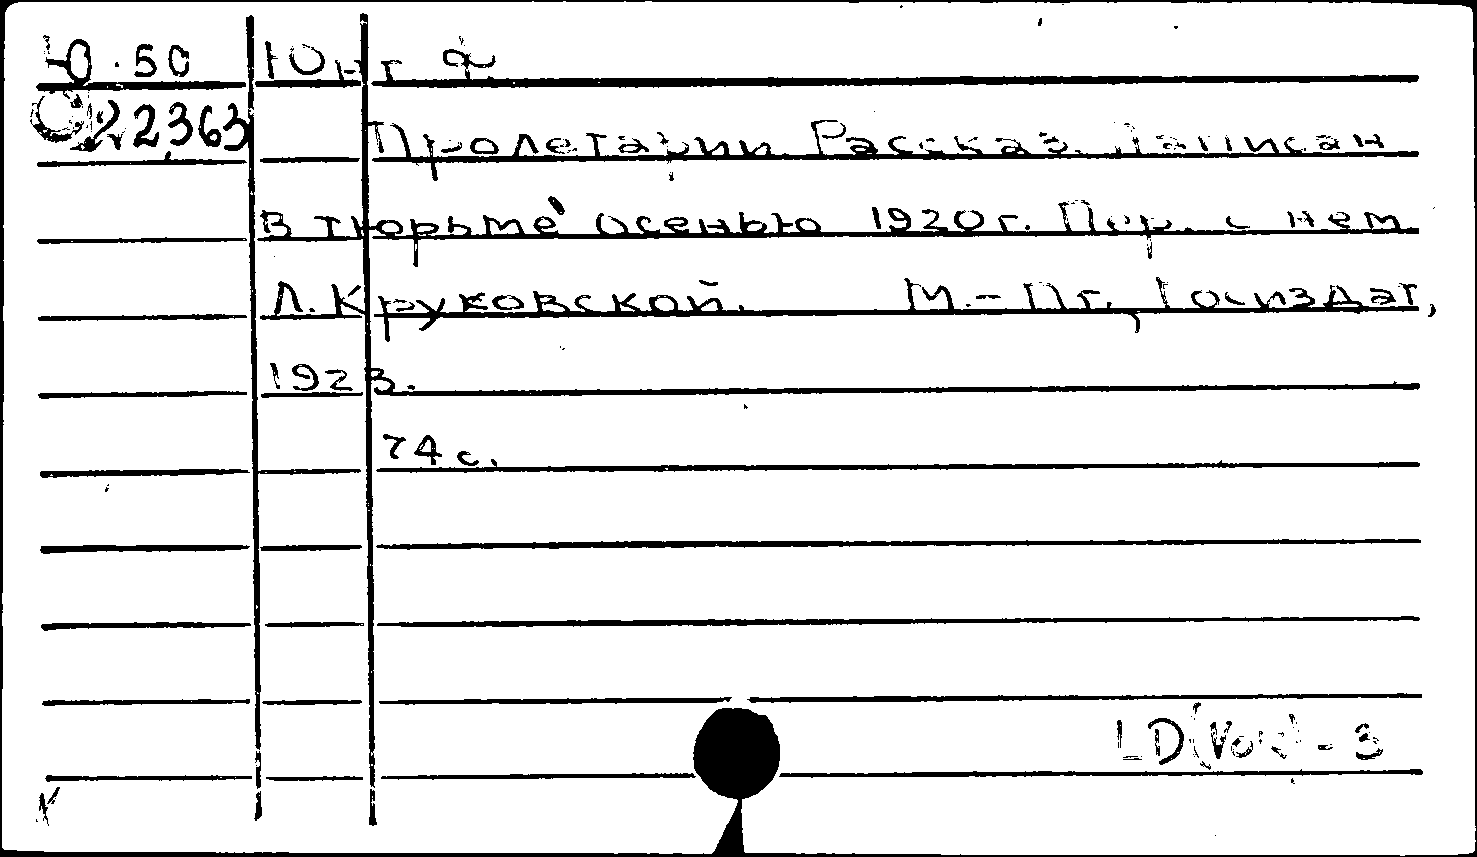 Ю.50 Юнг Ф.
22363
Пролетарии. Рассказ. Написан
в тюрьме осенью 1920 г. Пер. с нем.
Л. Круковской. М.-Пг., Госиздат,
1923.
74 с.
LD - 3